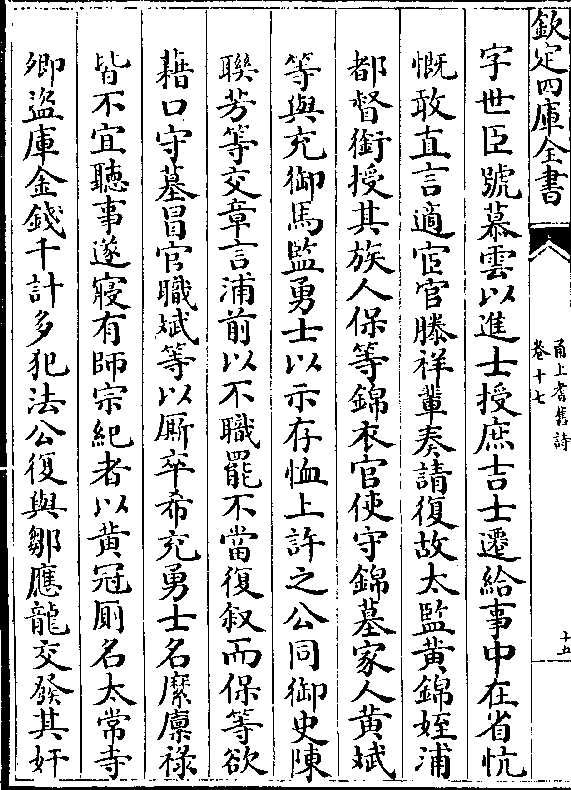 欽定四庫全書
甬上耆舊詩
卷十七
十五
字世臣號慕雲以進士授庶吉士遷給事中在省忼
慨敢直言適宦官滕祥輩奏請復故太監黃錦姪浦
都督銜授其族人保等錦衣官使守錦墓家人黃斌
等與充御馬監勇士以示存恤上許之公同御史陳
聯芳等交章言浦前以不職罷不當復叙而保等欲
藉口守墓冒官職斌等以厮卒希充勇士名縻廩祿
皆不宜聽事遂寢有師宗紀者以黃冠厠名太常寺
卿盗庫金錢千計多犯法公復與鄒應龍交發其奸